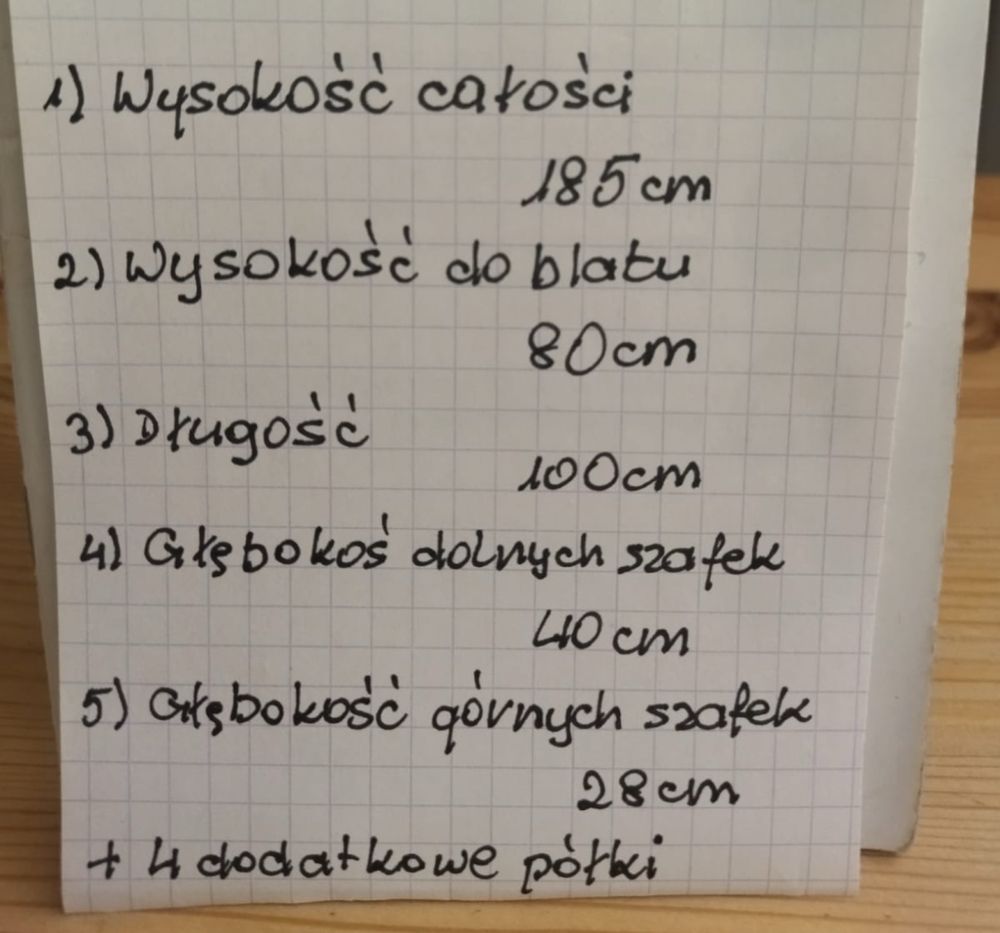 1) Wysokość całości
185 cm
2) Wysokość do blatu
80 cm
3) Długość
100 cm
4) Głębokoś dolnych szafek
40 cm
5) Głębokość górnych szafek
28 cm
+ 4 dodatkowe półki